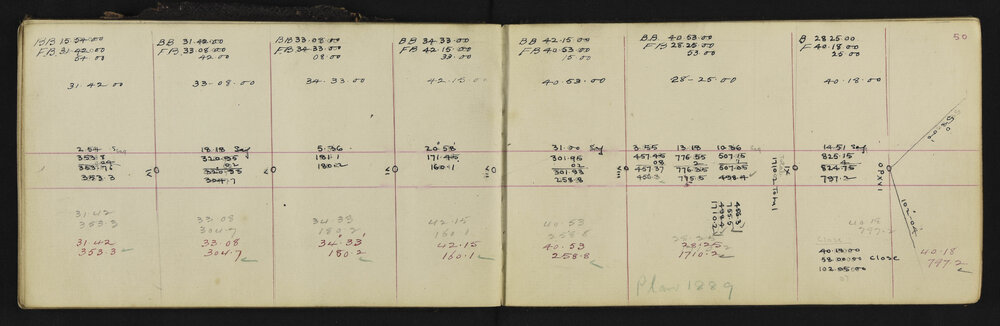 BB 15.54.00
FB 31.42.00
54 00
31.42.00
2.54 Sag
353.8
353.3
31.42
353.3
31.42
353.3
BB 31.42.00
FB 33.08.00
42 00
33-08.00
18.18 Sag
320.95
02
320.93
304.7
33.08
304.7
33.08
304.7
BB 33.08.00
FB 34.33.00
08 00
34.33.00
5.36
181.1
180.2
34.33
180.2
34.33
180.2
BB 34.33.00
FB 42.15.00
42.15.00
20.58
171.45
160.1
42.15
160.1
42.15
160.1
BB 42.15.00
FB 40.53.00
15.00
40.53.00
31.00 Sag
301.95
02
301.93
258.8
40.53
258.8
40.53
258.8
BB. 40.53.00
FB 28.25.00
53 00
28-25.00
3.55 13.18 10.36
457.45 776.55 507.15
08
457.37 776.35 507.05
498.4
28.25
1710.2
Plan 1889
B 28 25.00
F 40.18.00
25 00
40.18.00
14.51 Sag
825.15
824.75
797.2
OPXVI
40.18
797.2
Close
40.18.00
58.00.00 close
102.05.00
50
40.18
797.2